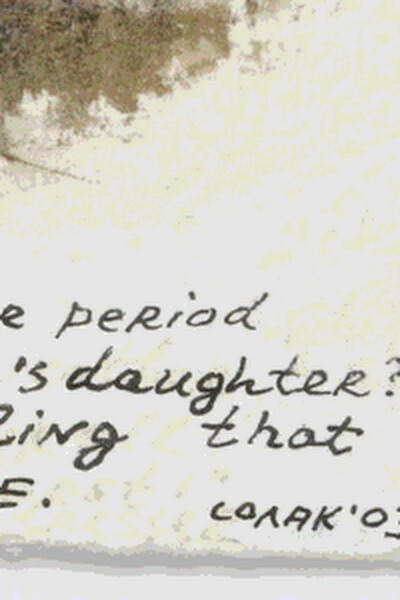 e period
's daughter?
ling that
E.
LORAK'03